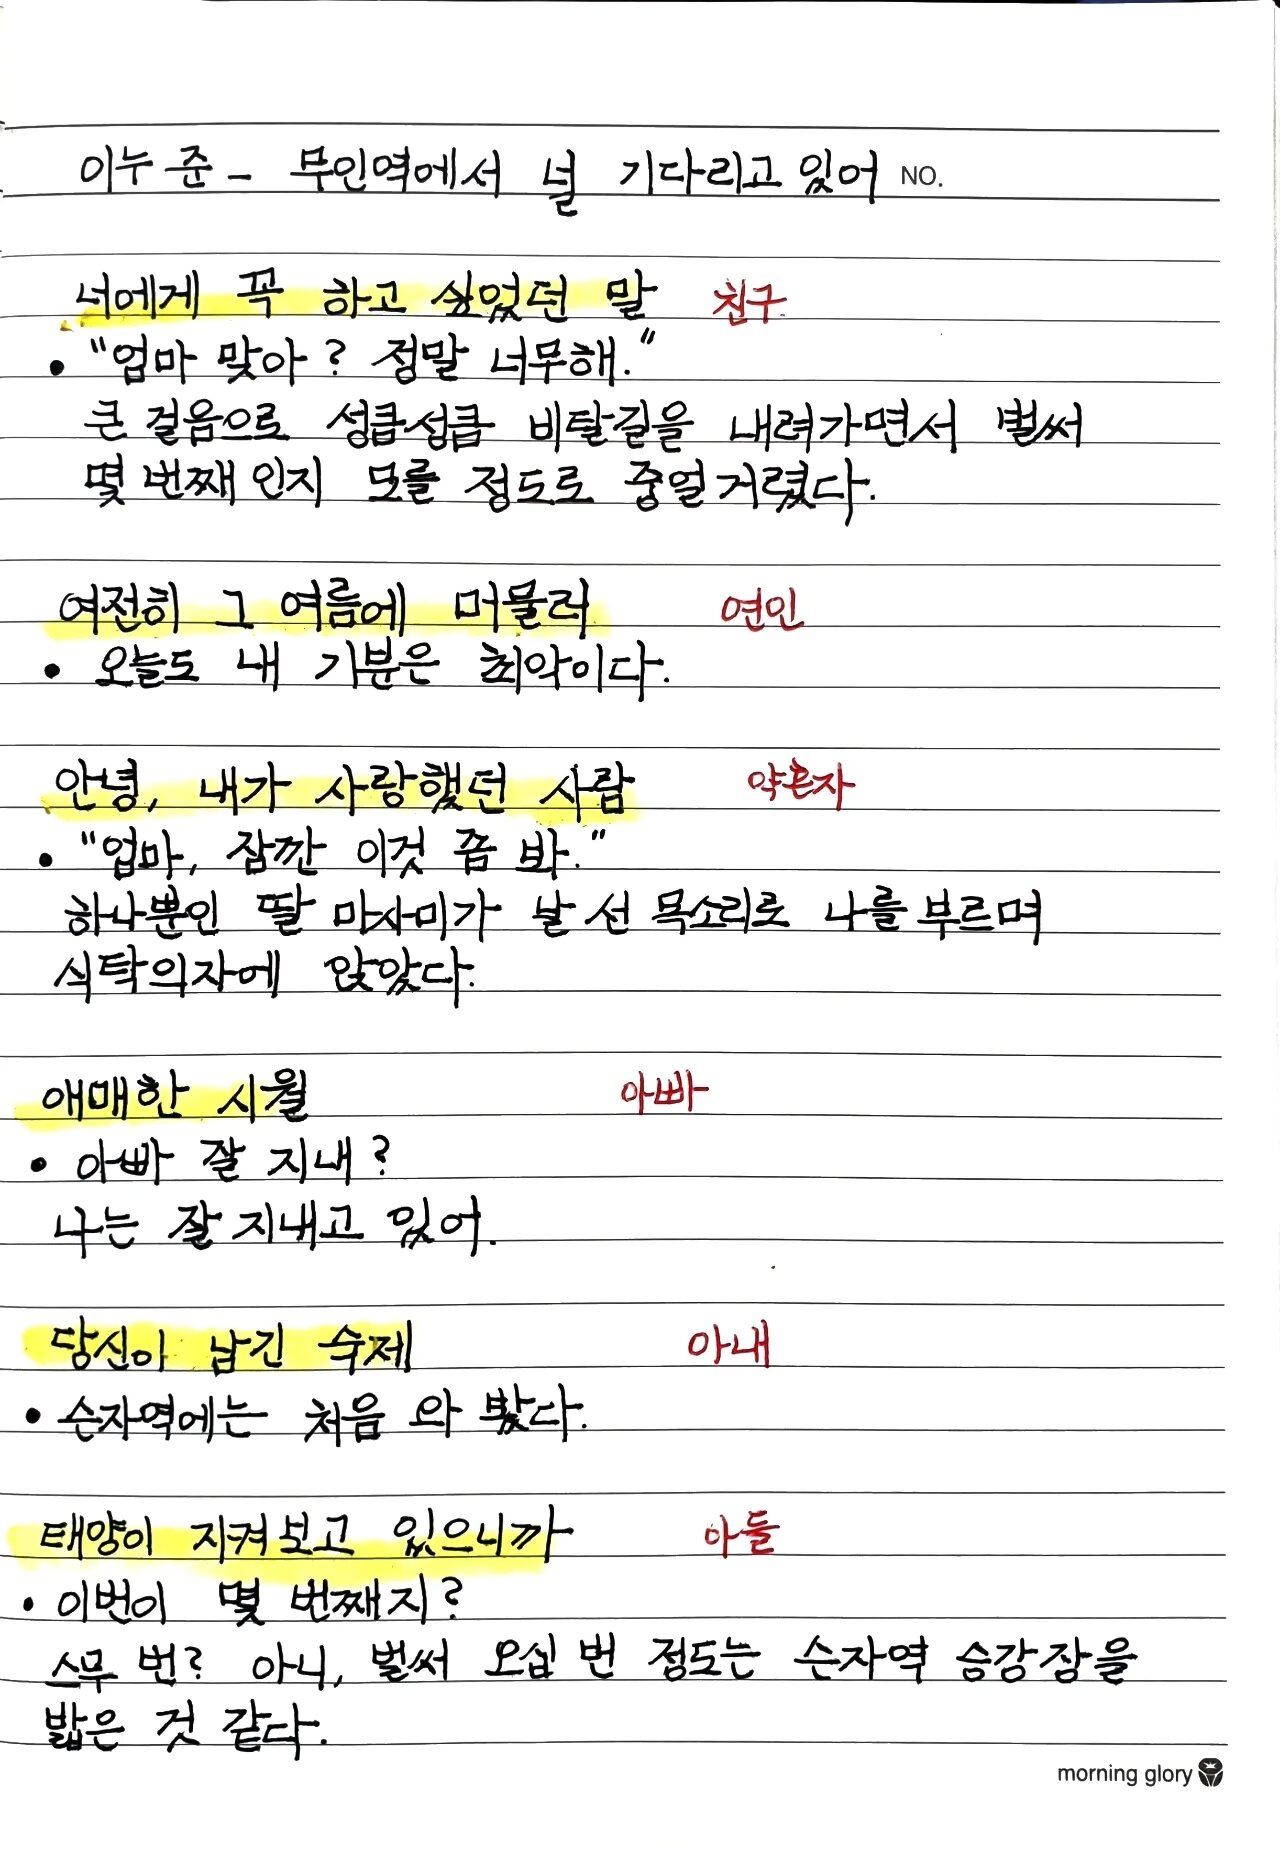 이누준 - 무인역에서 널 기다리고 있어 NO.
너에게 꼭 하고 싶었던 말 친구
• "엄마 맞아? 정말 너무해."
큰 걸음으로 성큼성큼 비탈길을 내려가면서 벌써
몇 번째인지 모를 정도로 중얼거렸다.
여전히 그 여름에 머물러 연인
• 오늘도 내 기분은 최악이다.
안녕, 내가 사랑했던 사람 약혼자
• "엄마, 잠깐 이것 좀 봐."
하나뿐인 딸 마사미가 날 선 목소리로 나를 부르며
식탁의자에 앉았다.
애매한 시월 아빠
• 아빠 잘 지내?
나는 잘 지내고 있어.
당신이 남긴 숙제 아내
• 슨자역에는 처음 와 봤다.
태양이 지켜보고 있으니까 아들
• 이번이 몇 번째지?
스무 번? 아니, 벌써 오십 번 정도는 슨자역 승강장을
밟은 것 같다.
morning glory